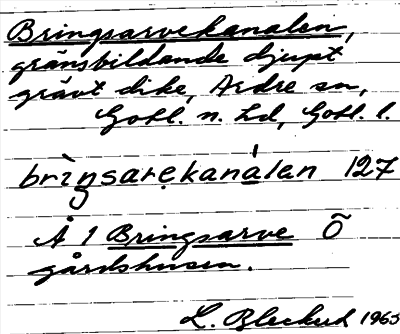 Bringsarvekanalen,
gränsbildande djupt
grävt dike, Ardre sn,
Gotl. n. hd, Gotl. l.
brìŋsarẹkanálan 127
Å 1 Bringsarve Õ
gårdshusen.
L. Bleckert 1965